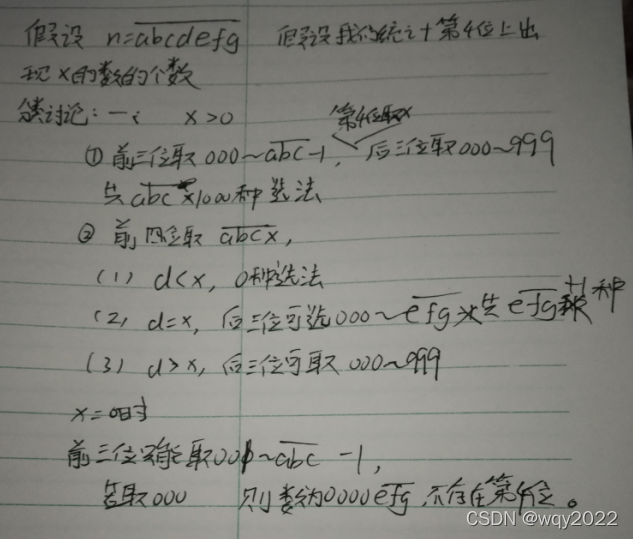 假设 n=abcdefg 假设我们统计第4位上出
现x的数的个数
分类讨论: 一: x>0
第4位取x
① 前三位取 000~abc-1, 后三位取000~999
共 abc×1000种选法
② 前四位取 abcx,
(1) d<x, 0种选法
(2) d=x, 后三位可选000~efg 共efg+1种
(3) d>x, 后三位可取 000~999
x=0时
前三位只能取001~abc-1,
若取000 则数为0000efg,不存在第4位。
CSDN @wqy2022